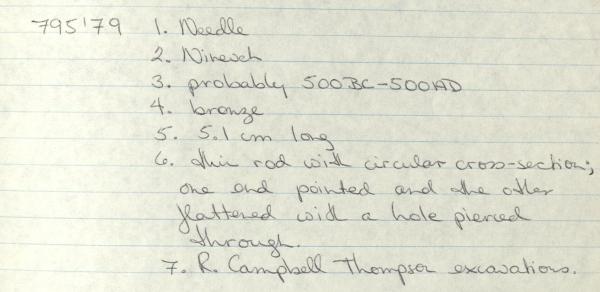 795'79 1. Needle
2. Nineveh
3. probably 500BC-500AD
4. bronze
5. 5.1 cm long
6. thin rod with circular cross-section;
one end pointed and the other
flattened with a hole pierced
through.
7. R. Campbell Thompson excavations.